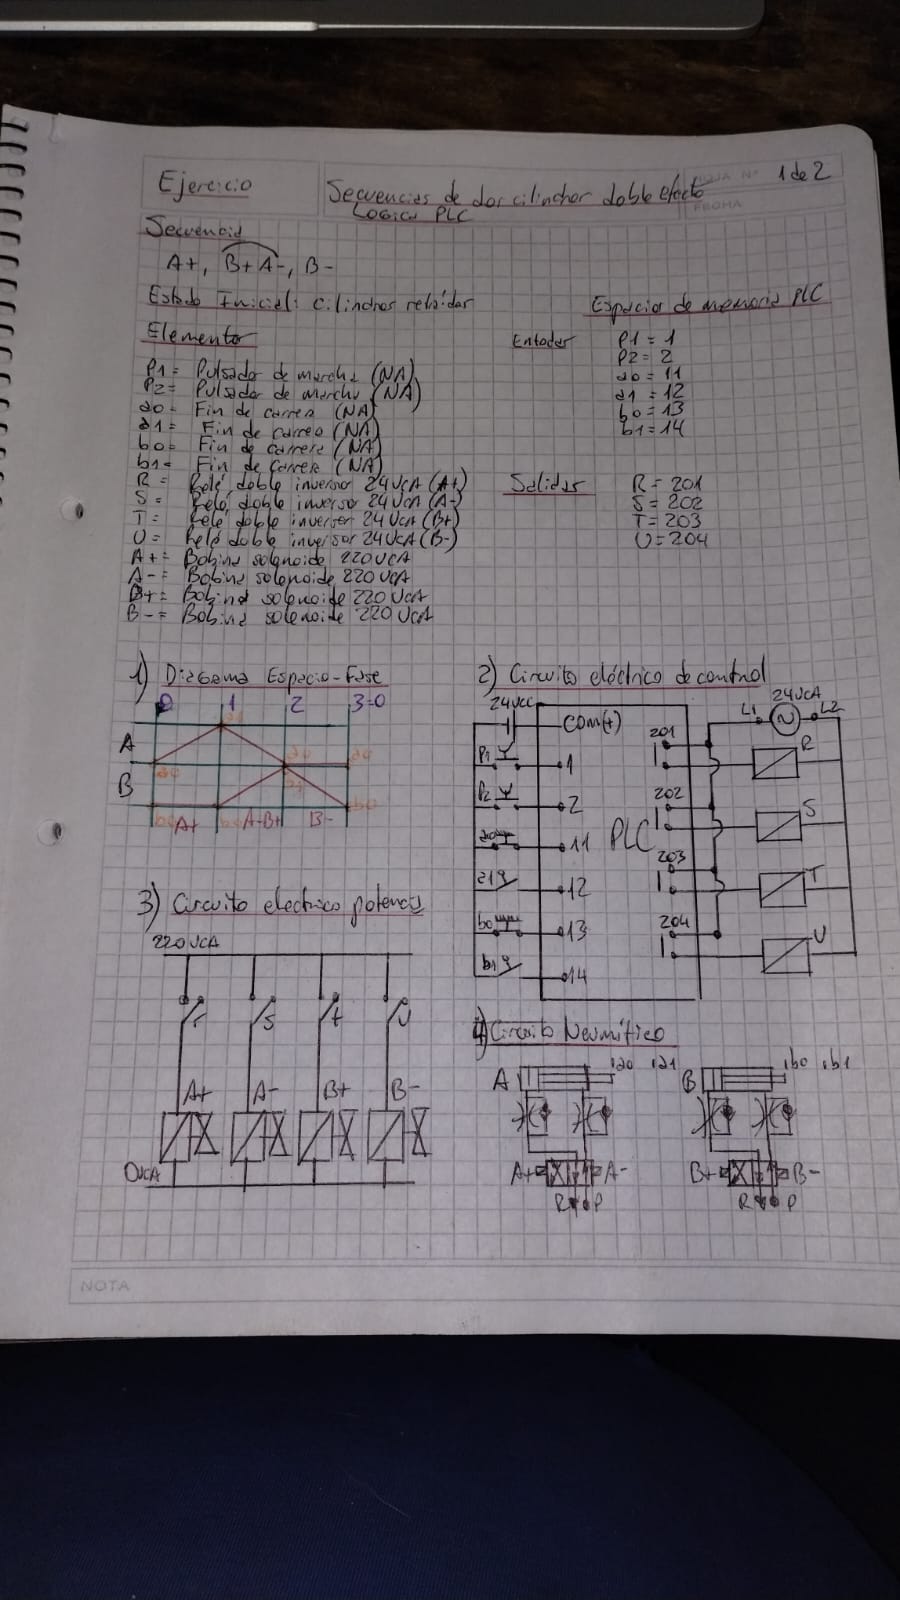 Ejercicio
Secuencias de dos cilindros doble efecto
Logica PLC
HOJA N° 1 de 2
FECHA
Secuencia
A+, B+A-, B-
Estado Inicial: Cilindros retraídos
Espacio de memoria PLC
Elementos
Entradas
P1 = 1
P2 = 2
a0 = 11
a1 = 12
b0 = 13
b1 = 14
P1 = Pulsador de marcha (NA)
P2 = Pulsador de marcha (NA)
a0 = Fin de carrera (NA)
a1 = Fin de carrera (NA)
b0 = Fin de carrera (NA)
b1 = Fin de carrera (NA)
R = Relé doble inversor 24VCA (A+)
S = Relé doble inversor 24VCA (A-)
T = Relé doble inversor 24VCA (B+)
U = Relé doble inversor 24VCA (B-)
A+ = Bobina solenoide 220VCA
A- = Bobina solenoide 220VCA
B+ = Bobina solenoide 220VCA
B- = Bobina solenoide 220VCA
Salidas
R = 201
S = 202
T = 203
U = 204
1) Diagrama Espacio-Fase
0 1 2 3=0
A
B
a1
a0 a0 a0
b1
b0 b0 b0
A+ A-B+ B-
2) Circuito eléctrico de control
24VCC
COM(+)
P1 1
P2 2
a0 11
a1 12
b0 13
b1 14
PLC
201
202
203
204
24VCA
L1 L2
R
S
T
U
3) Circuito electrico potencia
220VCA
r s t U
A+ A- B+ B-
0VCA
4) Circuito Neumático
A a0 a1
B b0 b1
A+ A-
R P
B+ B-
R P
NOTA